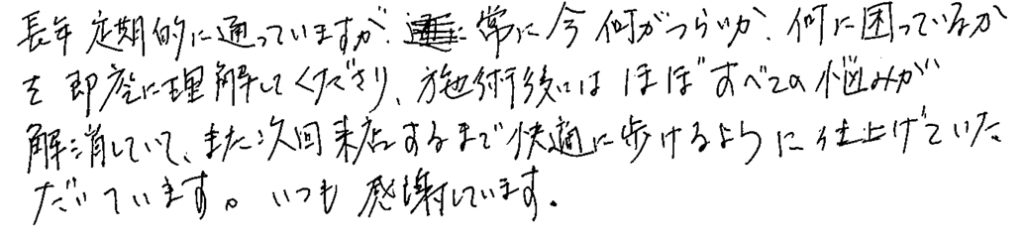 長年定期的に通っていますが、常に今何がつらいか、何に困っているか
を即座に理解してくださり、施術後にはほぼすべての悩みが
解消していて、また次回来店するまで快適に歩けるように仕上げていた
だいています。いつも感謝しています。